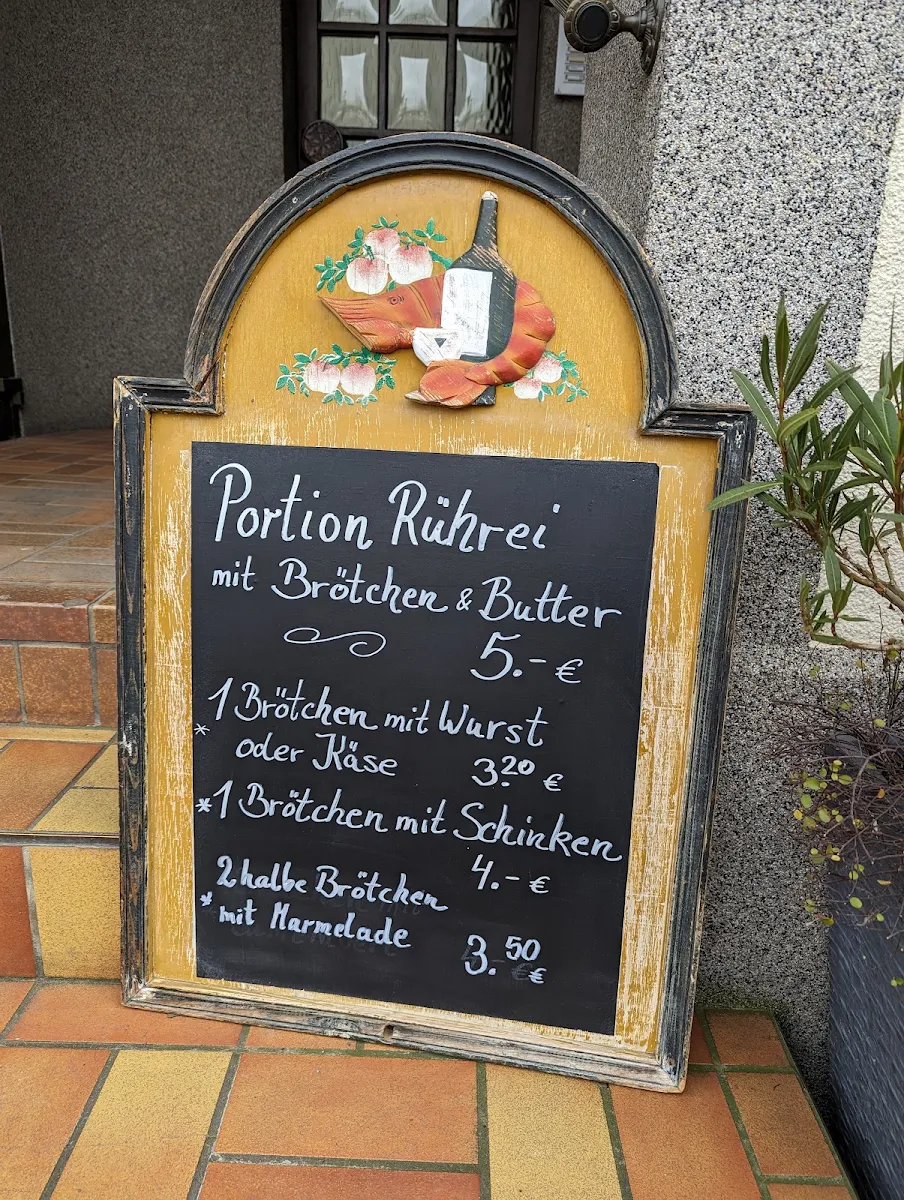 Portion Rührei
mit Brötchen & Butter
5.- €
1 Brötchen mit Wurst
* oder Käse 3.20 €
* 1 Brötchen mit Schinken
4.- €
2 halbe Brötchen
* mit Marmelade
3.50 €